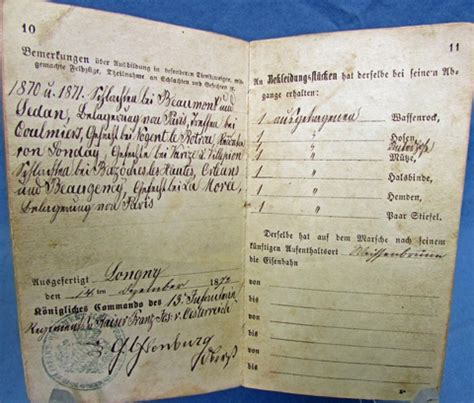 10
Bemerkungen über Ausbildung in besonderen Dienstzweigen, mit-
gemachte Feldzüge, Theilnahme an Schlachten und Gefechten ꝛc.
1870 u. 1871. Schlachten bei Beaumont und
Sedan, Belagerung von Paris, Treffen bei
Coulmiers, Gefecht bei Nogent le Rotrou,
von Gefechte bei
Schlachten bei Bazoches les Hautes, Orleans
und Beaugency, Gefecht bei La
Belagerung von Paris
Ausgefertigt Longny
den 14. 18
Königliches Commando des 13. Infanterie
Regiments Kaiser Franz Jos. v. Oesterreich
Oberst
11
An Bekleidungsstücken hat derselbe bei seinem Ab-
gange erhalten:
1 Waffenrock,
1 " Hosen,
1 " Mütze,
1 " Halsbinde,
1 " Hemden,
1 " Paar Stiefel.
Derselbe hat auf dem Marsche nach seinem
künftigen Aufenthaltsort Weissenbrunn
die Eisenbahn
von
bis
von
bis
von
bis
von
bis